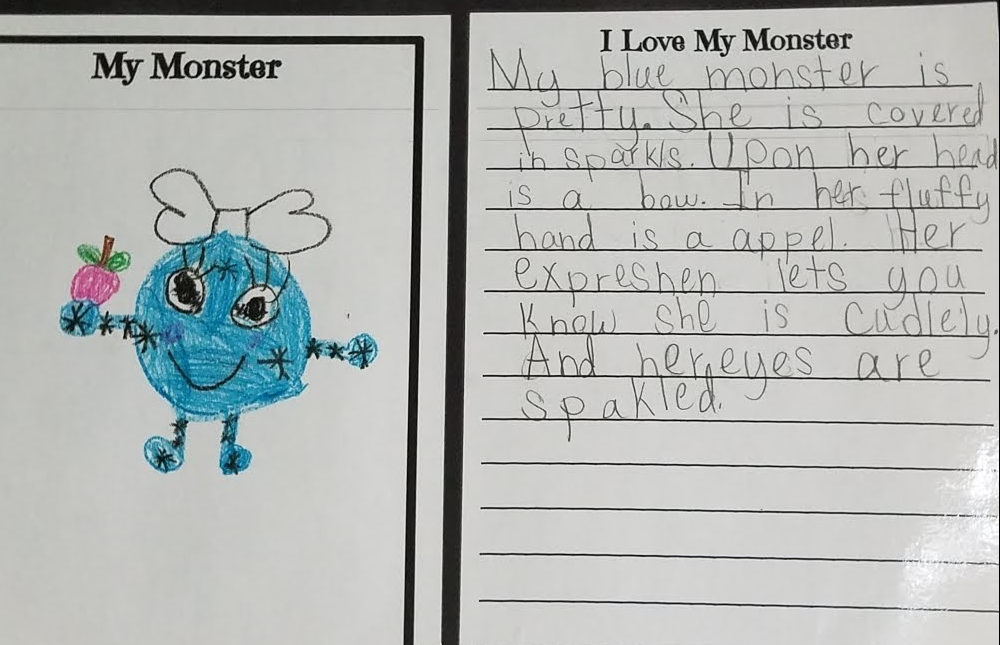 My Monster
I Love My Monster
My blue monster is
pretty. She is covered
in sparkls. Upon her head
is a bow. In her fluffy
hand is a appel. Her
expreshen lets you
know she is cudlely.
And her eyes are
spakled.